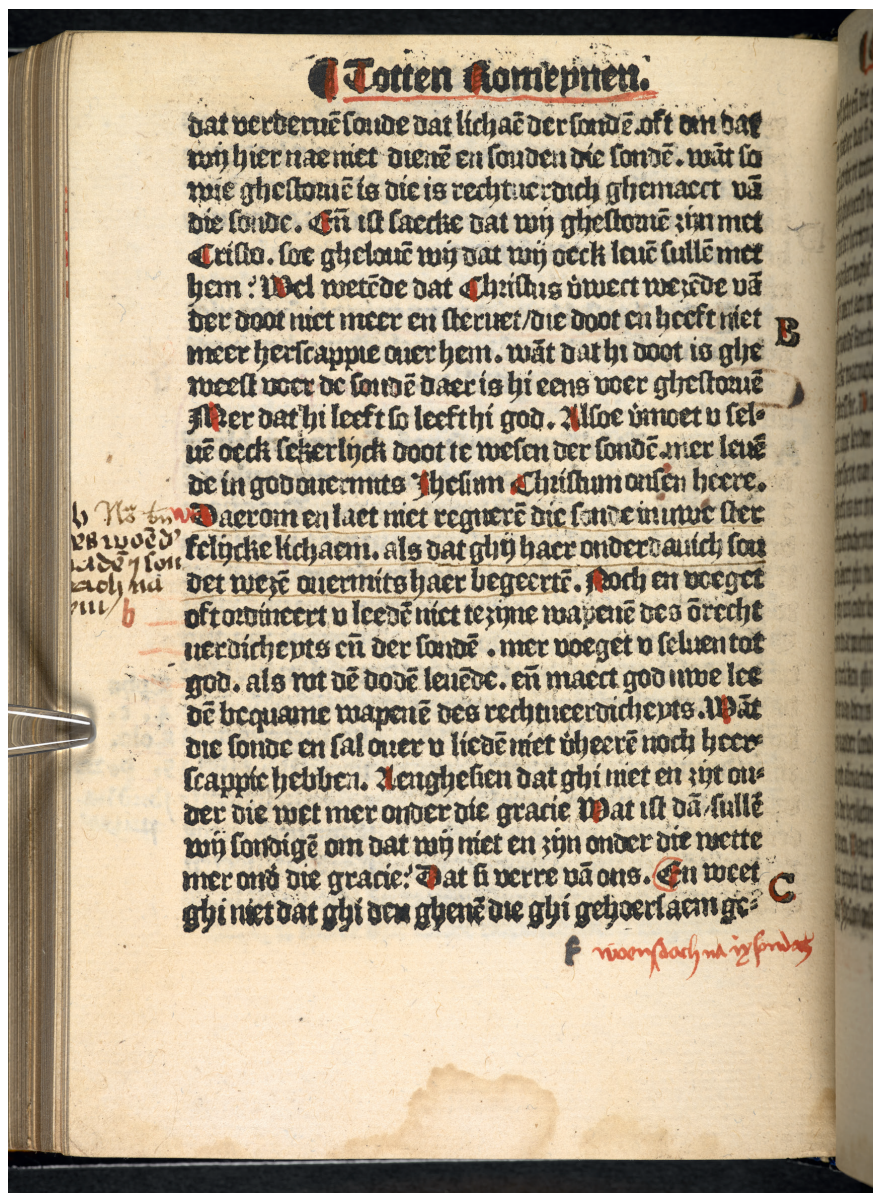 Totten Romeynen.
dat verderuē soude dat lichaē der sondē. oft om dat
wij hier nae niet dienē en souden die sondē. wāt so
wie ghestoruē is die is rechtuerdich ghemaect vā
die sonde. Eñ ist saecke dat wij ghestoruē zijn met
Cristo. soe ghelouē wij dat wij oeck leuē sullē met
hem: Wel wetēde dat Christus v̄wect wezēde vā
der doot niet meer en steruet/die doot en heeft niet
B
meer herscappie ouer hem. wāt dat hi doot is ghe
weest voer de sondē daer is hi eens voer ghestoruē
Mer dat hi leeft so leeft hi god. Alsoe v̄moet v sel-
uē oeck sekerlijck doot te wesen der sondē. mer leuē
de in god ouermits Jhesum Christum onsen heere.
Daerom en laet niet regnerē die sonde in uwe ster
felijcke lichaem. als dat ghij haer onderdanich sou
det wezē ouermits haer begeertē. Noch en voeget
oft ordineert v leedē niet te zijne wapenē des ōrecht
b
uerdicheyts eñ der sondē. mer voeget v seluen tot
god. als wt dē dodē leuēde. eñ maect god uwe lee
dē bequame wapenē des rechtueerdicheyts. Wāt
die sonde en sal ouer v liedē niet v̄heerē noch heer-
scappie hebben. Aenghesien dat ghi niet en zijt on-
der die wet mer onder die gracie Wat ist dā/sullē
wij sondigē om dat wij niet en zijn onder die wette
mer ond̄ die gracie: Dat si verre vā ons. En weet
C
ghi niet dat ghi den ghenē die ghi gehoersaem ge-
f woensdach na